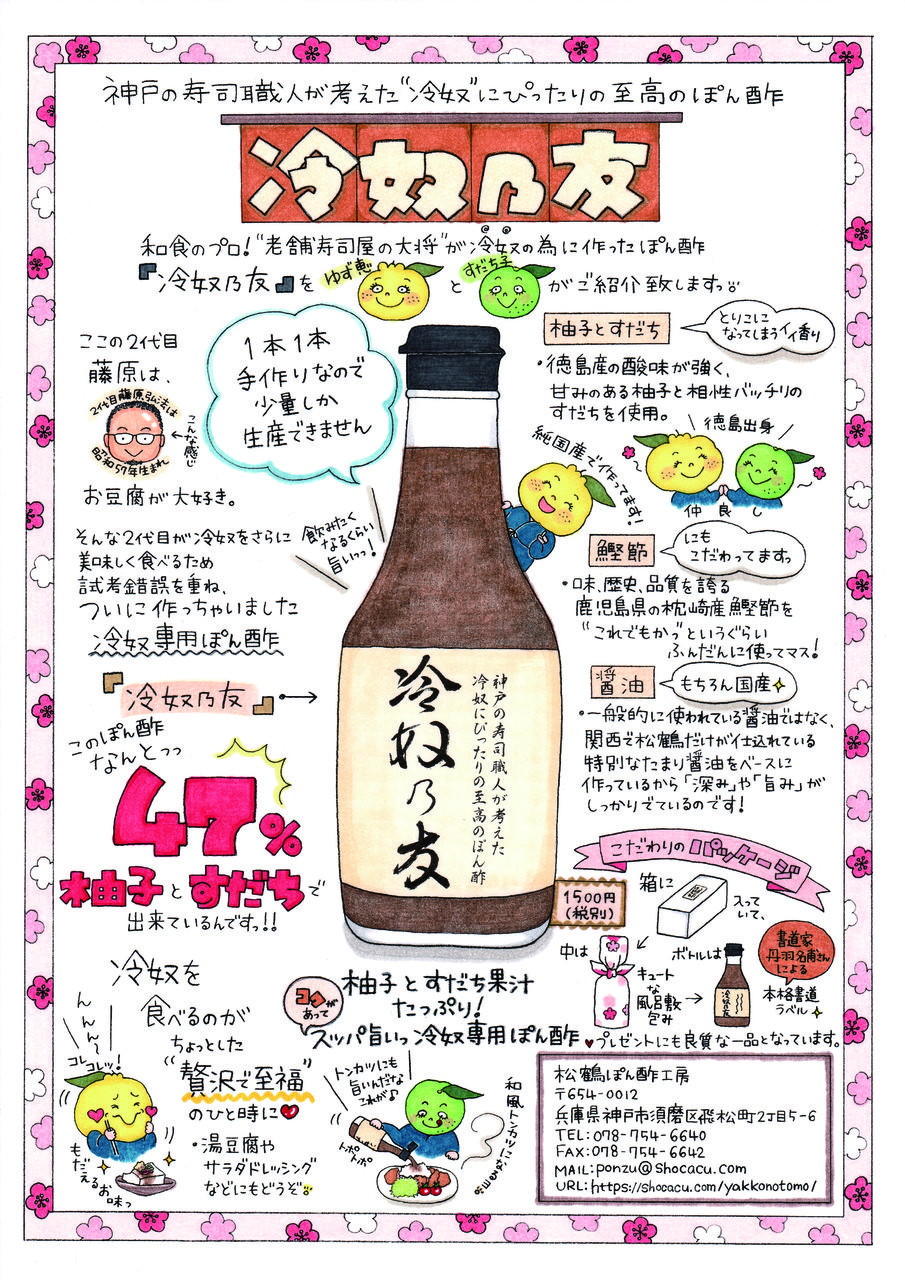 神戸の寿司職人が考えた"冷奴"にぴったりの至高のぽん酢
冷奴乃友
和食のプロ!"老舗寿司屋の大将"が冷奴の為に作ったぽん酢
『冷奴乃友』を ゆず恵 と すだち子 がご紹介致しますっ
ここの2代目
藤原は、
2代目藤原弘法は
昭和57年生まれ
←こんな感じ
お豆腐が大好き。
1本1本
手作りなので
少量しか
生産できません
そんな2代目が冷奴をさらに
美味しく食べるため
試考錯誤を重ね、
ついに作っちゃいました
冷奴専用ぽん酢
飲みたく
なるぐらい
旨いっっ!
『冷奴乃友』
このぽん酢
なんとっっ
47%
柚子とすだちで
出来ているんですっ!!
冷奴乃友
神戸の寿司職人が考えた
冷奴にぴったりの至高のぽん酢
柚子とすだち
とりこに
なってしまうイイ香り
・徳島産の酸味が強く、
甘みのある柚子と相性バッチリの
すだちを使用。
純国産で作ってます!
徳島出身
仲良し
鰹節
にも
こだわってますっ
・味、歴史、品質を誇る
鹿児島県の枕崎産鰹節を
"これでもかっ"というぐらい
ふんだんに使ってマス!
醤油
もちろん国産
・一般的に使われている醤油ではなく、
関西で松鶴だけが仕込れている
特別なたまり醤油をベースに
作っているから「深み」や「旨み」が
しっかりでているのです!
こだわりのパッケージ
1500円
(税別)
箱に
入っていて、
中は
キュート
な
風呂敷
包み
ボトルは
書道家
丹羽名甫さん
による
本格書道
ラベル
♥プレゼントにも良質な一品となっています。
冷奴を
食べるのが
ちょっとした
"贅沢で至福"
のひと時に♥
・湯豆腐や
サラダドレッシング
などにもどうぞ
んんん〜
コレコレッ!
もだえる
お味っ
コクが
あって
柚子とすだち果汁
たっぷり!
スッパ旨いっ冷奴専用ぽん酢
トンカツにも
旨いんだな
これが♪
トポトポ
松鶴ぽん酢工房
〒654-0012
兵庫県神戸市須磨区飛松町2丁目5-6
TEL:078-754-6640
FAX:078-754-6642
MAIL:ponzu@shocacu.com
URL:https://shocacu.com/yakkonotomo/